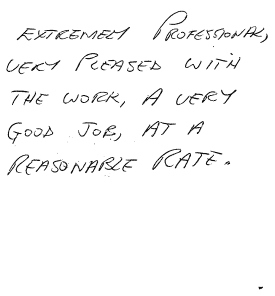 EXTREMELY PROFESSIONAL,
VERY PLEASED WITH
THE WORK, A VERY
GOOD JOB, AT A
REASONABLE RATE.